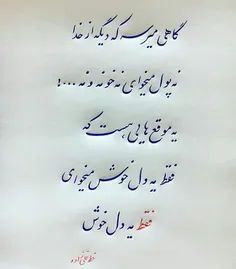 گاهی میرسه که دیگه از خدا
نه پول میخوای نه خونه و نه ....!
یه موقع هایی هست که
فقط یه دل خوش میخوای
فقط یه دل خوش
خط تقی زاده